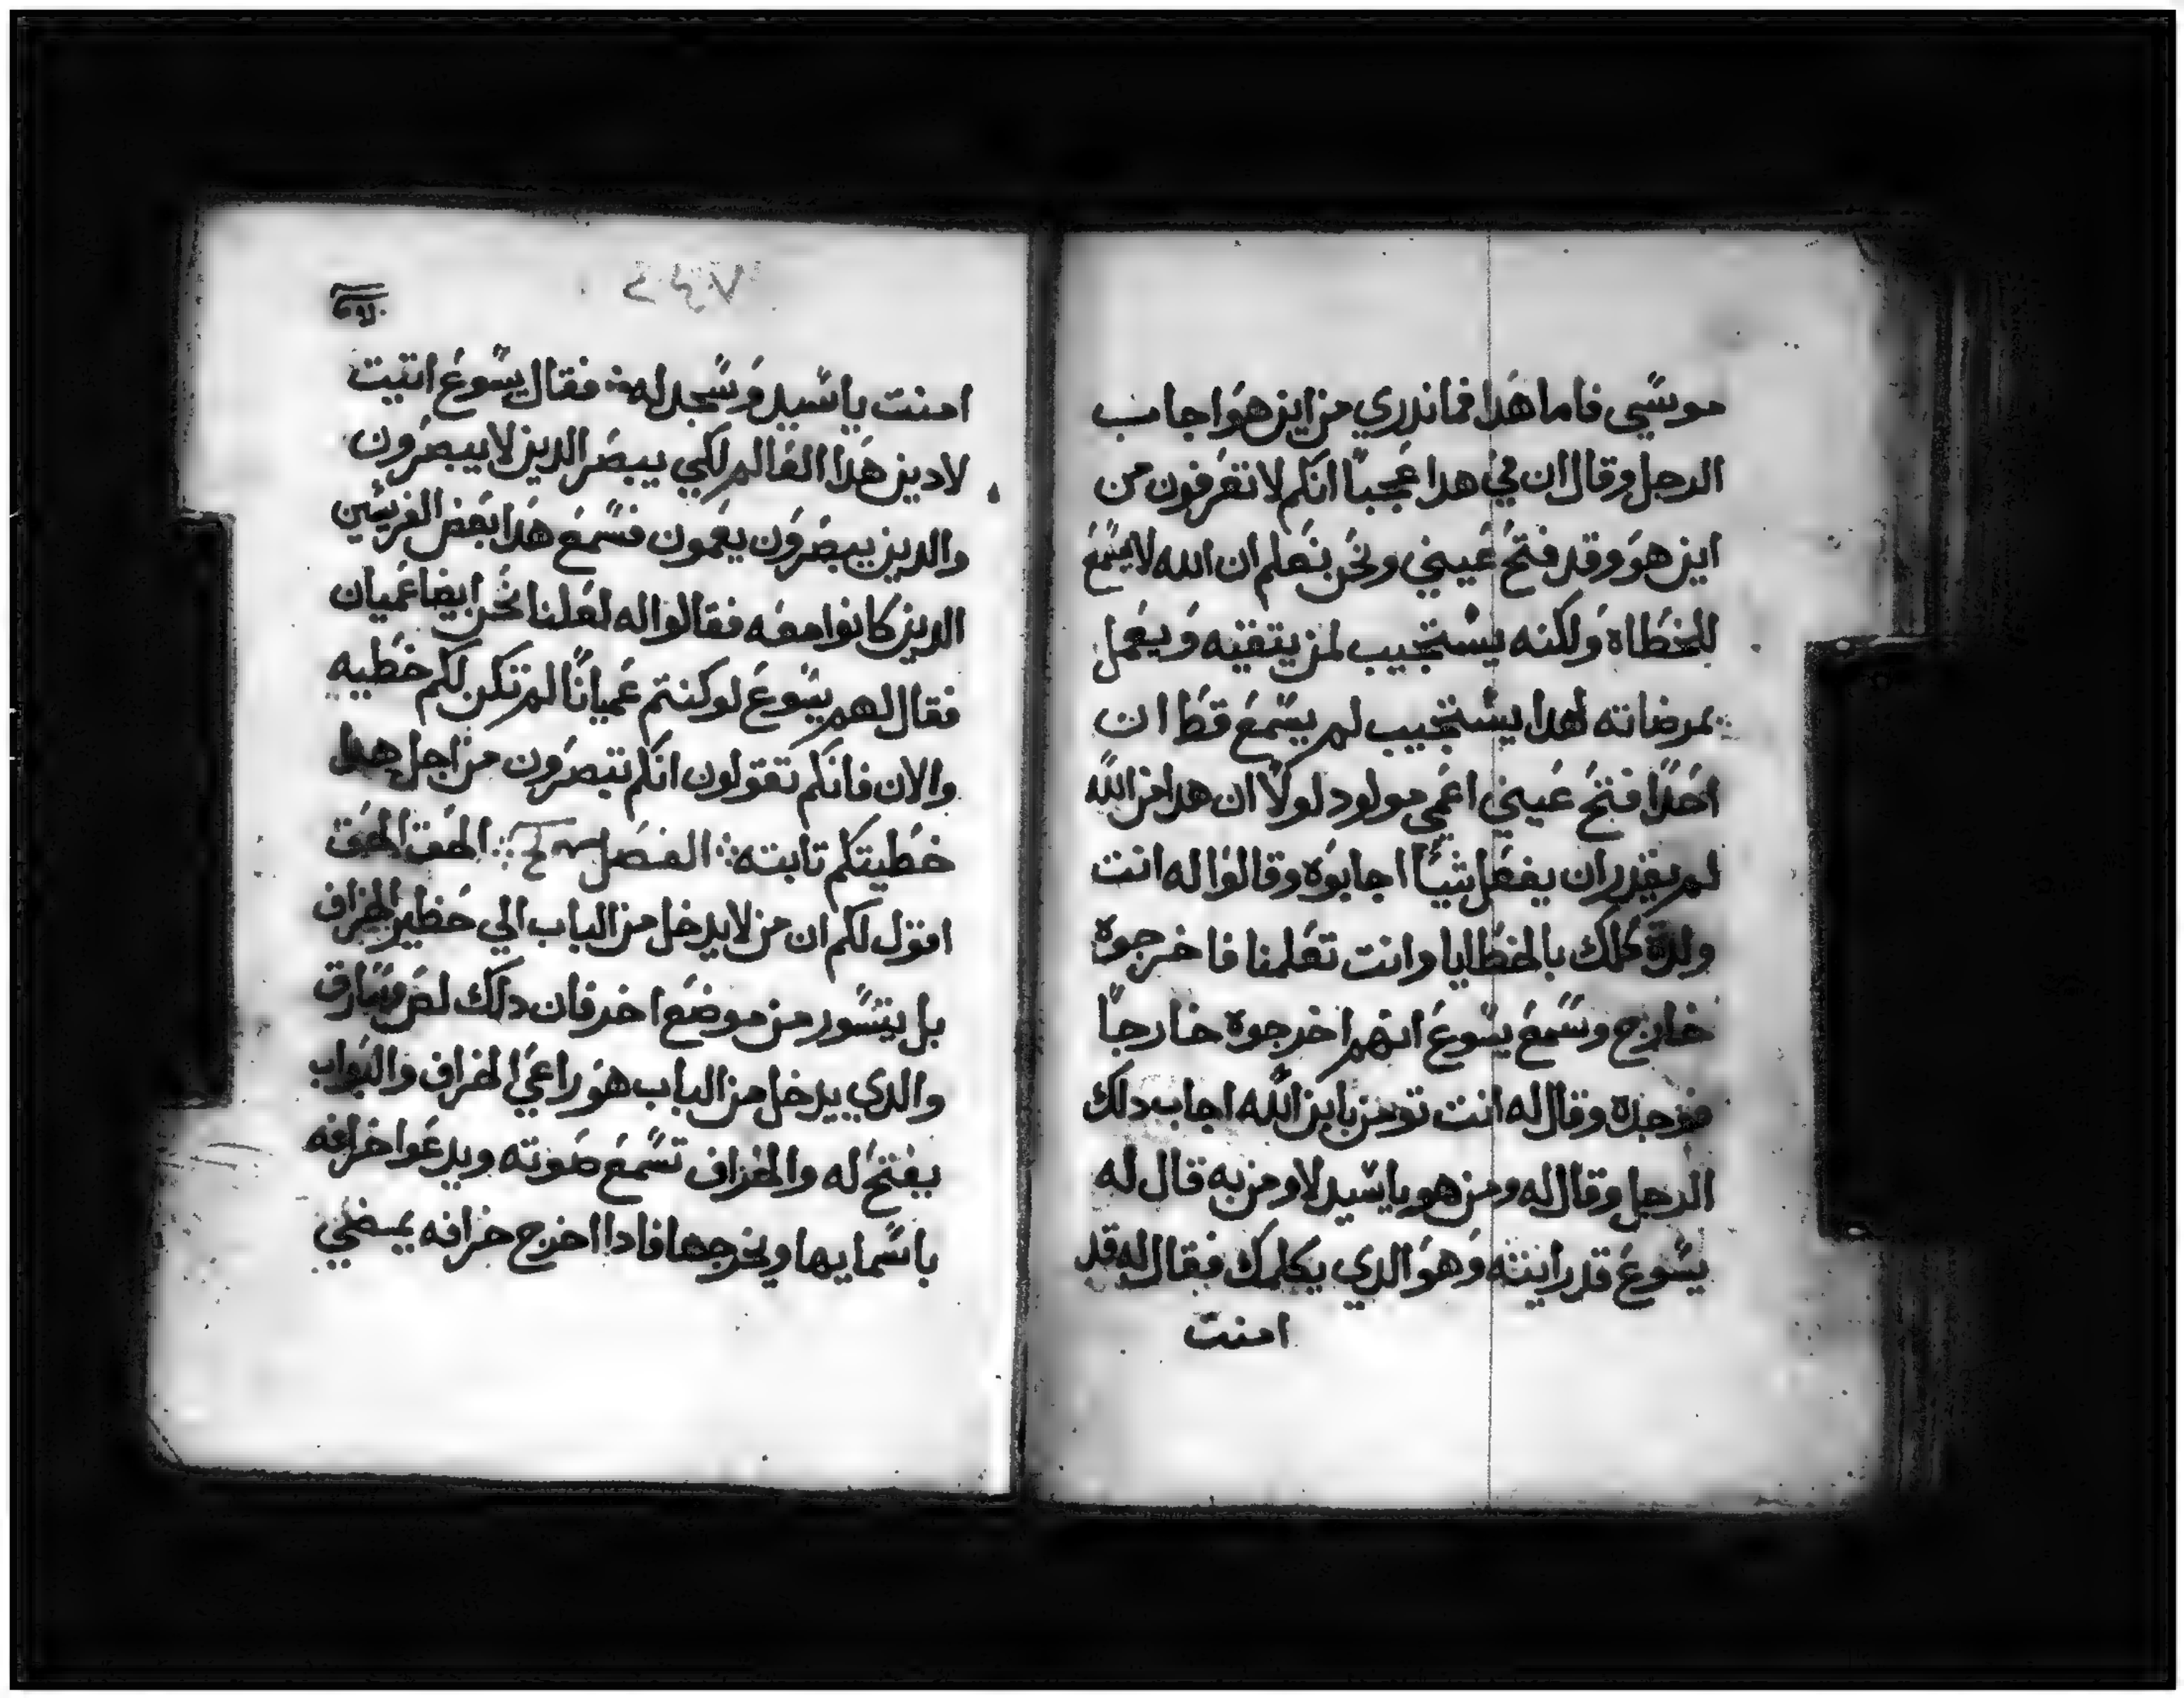 موسي فاما هدا فما ندري من اين هو اجاب
الرجل وقال ان في هدا عجبا انكم لا تعرفون من
اين هو وقد فتح عيني ونحن نعلم ان الله لا يسمع
للخطاه ولكنه يستجيب لمن يتقيه ويعمل
بمرضاته لهدا يستجيب لم يسمع قط ان
احدا فتح عيني اعمي مولود لولا ان هدا من الله
لم يقدر ان يفعل شيا اجابوه وقالوا له انت
ولدة كلك بالخطايا وانت تعلمنا فاخرجوه
خارج وسمع يسوع انهم اخرجوه خارجا
فوجده وقال له انت تومن بابن الله اجاب دلك
الرجل وقال له ومن هو يا سيد لاومن به قال له
يسوع قد رايته وهو الدي يكلمك فقال له قد
امنت
امنت يا سيد وسجد له فقال يسوع اتيت
لادين هدا العالم لكي يبصر الدين لا يبصرون
والدين يبصرون يعمون فسمع هدا بعض الفريسين
الدين كانوا معه فقالوا له لعلنا نحن ايضا عميان
فقال لهم يسوع لو كنتم عميانا لم تكن لكم خطيه
والان فانكم تقولون انكم تبصرون من اجل هدا
خطيتكم تابته الفصل الحق الحق
اقول لكم ان من لا يدخل من الباب الي حظير الخراف
بل يتسور من موضع اخر فان دلك لص وسارق
والدي يدخل من الباب هو راعي الخراف والبواب
يفتح له والخراف تسمع صوته ويدعوا خرافه
باسمايها ويخرجها فادا اخرج خرافه يمضي